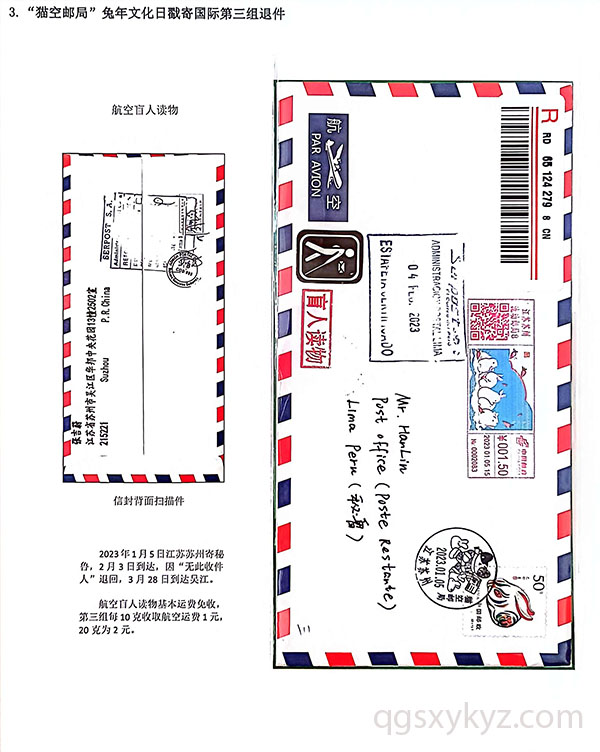 3. “猫空邮局”兔年文化日戳寄国际第三组退件
航空盲人读物
SERPOST S. A.
张吉蔚
江苏省苏州市吴江区华邦中央花园13幢2502室
215221 Suzhou P. R. China
信封背面扫描件
2023年1月5日江苏苏州寄秘
鲁，2月3日到达，因“无此收件
人”退回，3月28日到达吴江。
航空盲人读物基本运费免收，
第三组每10克收取航空运费1元，
20克为2元。
航空
PAR AVION
R
RD 65 124 279 8 CN
盲人读物
04 Feb. 2023
江苏苏州
中国邮政
¥001.50
2023 01 05 15
№ 0002083
Mr. HanLin
Post office (Poste Restante)
Lima Peru (秘鲁)
2023.01.05
江苏苏州
猫空邮局
50分
中国邮政
qgsxykyz.com